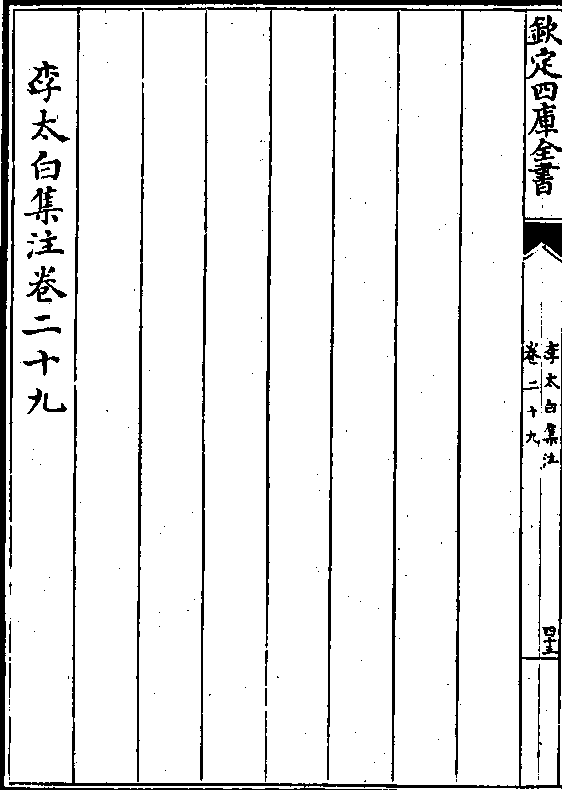 欽定四庫全書
李太白集注
卷二十九
四十五
李太白集注卷二十九